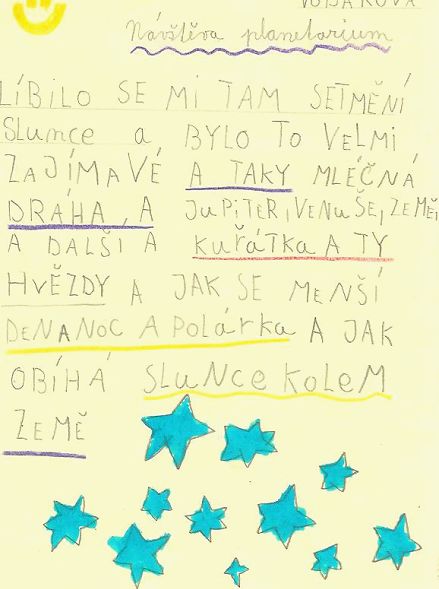 Návštěva planetarium
LÍBILO SE MI TAM SETMĚNÍ
SLUNCE a BYLO TO VELMI
ZAJÍMAVÉ A TAKY MLÉČNÁ
DRÁHA, A JUPITER, VENUŠE, ZEMĚ
A DALŠÍ A KUŘÁTKA A TY
HVĚZDY A JAK SE MENŠÍ
DENANOC A POLÁRKA A JAK
OBÍHÁ SLUNCE KOLEM
ZEMĚ